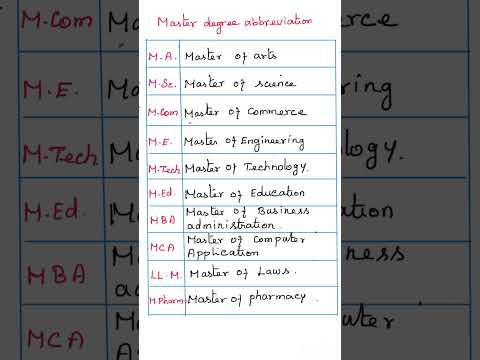 Master degree abbreviation
M.A. Master of arts
M.Sc. Master of science
M.Com Master of Commerce
M.E. Master of Engineering
M.Tech Master of Technology.
M.Ed. Master of Education
MBA Master of Business
administration.
MCA Master of Computer
Application
LL.M. Master of Laws.
M.Pharm Master of pharmacy.